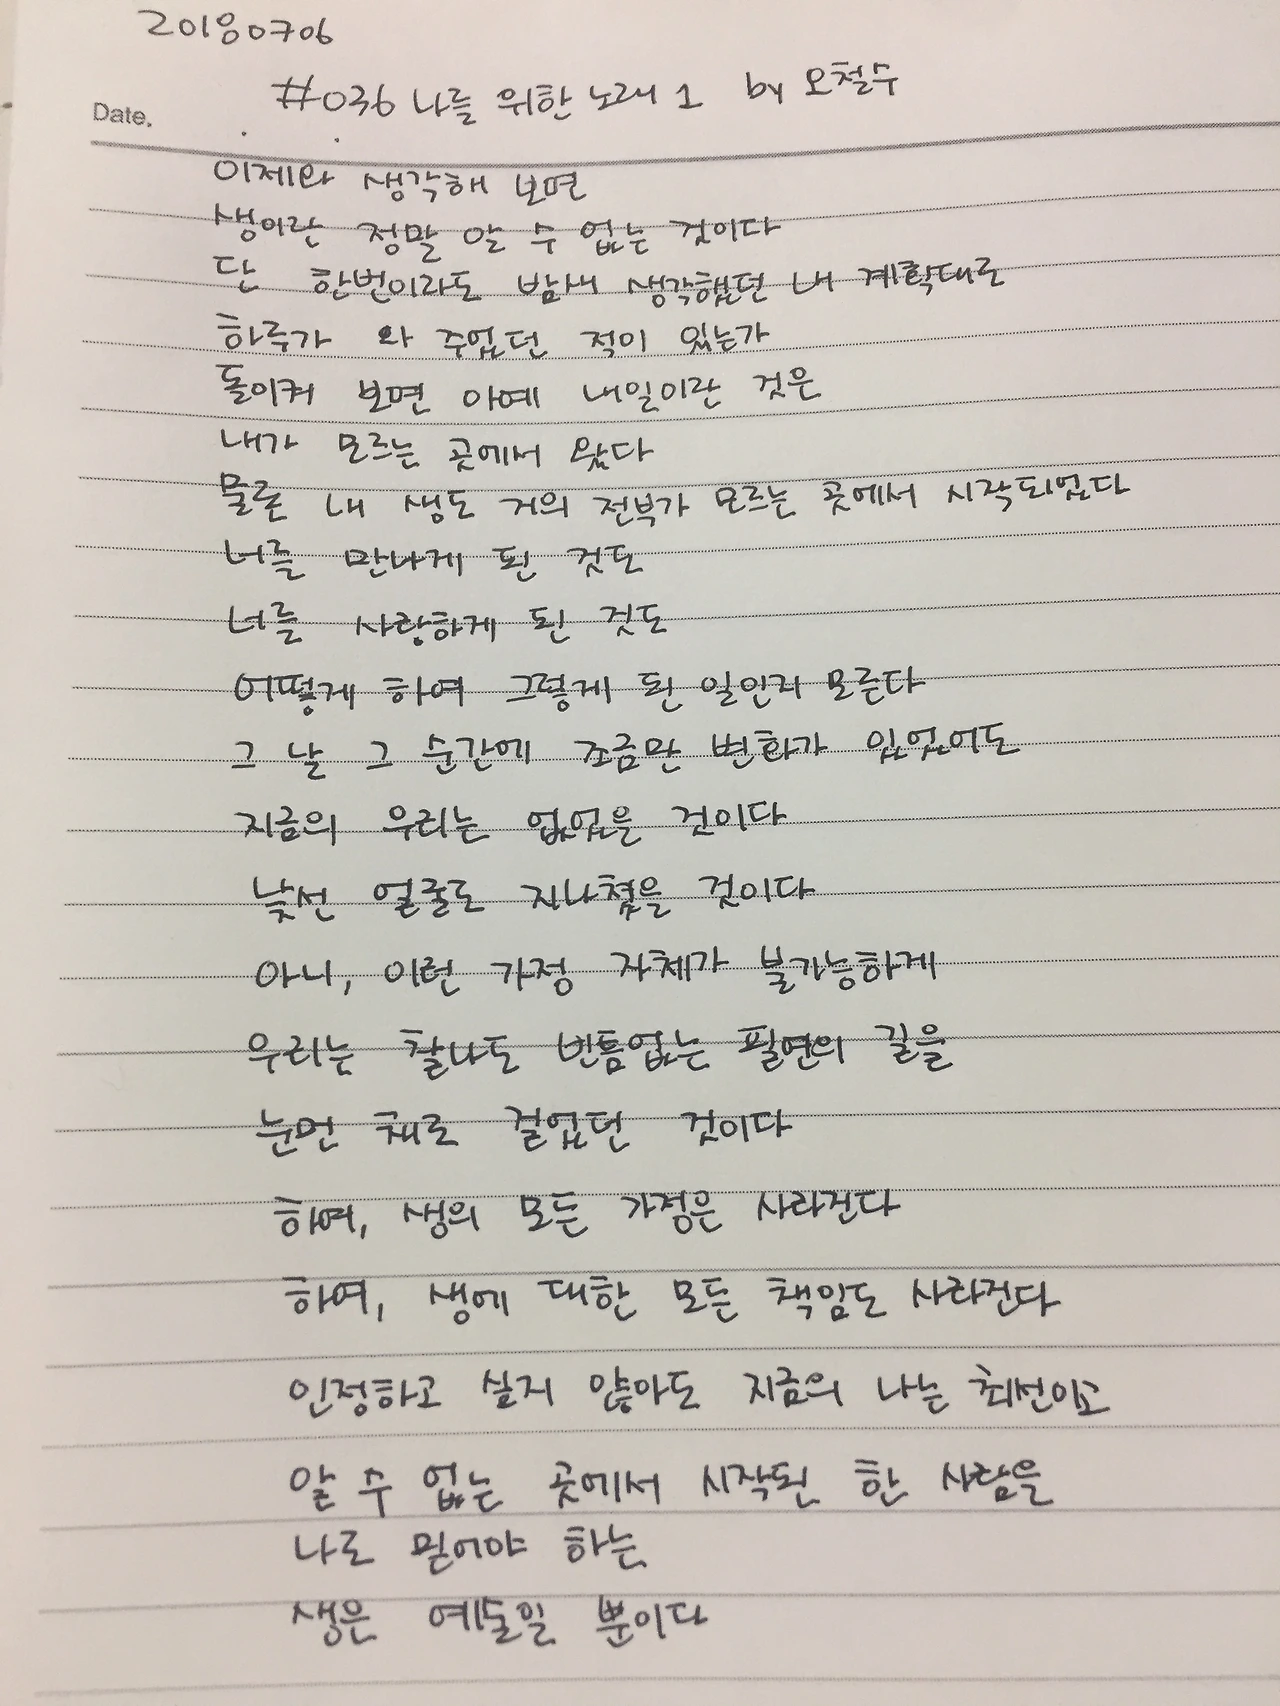 20180706
#036 나를 위한 노래 1 by 오철수
Date.
이제와 생각해 보면
생이란 정말 알 수 없는 것이다
단 한번이라도 밤새 생각했던 내 계획대로
하루가 와 주었던 적이 있는가
돌이켜 보면 아예 내일이란 것은
내가 모르는 곳에서 왔다
물론 내 생도 거의 전부가 모르는 곳에서 시작되었다
너를 만나게 된 것도
너를 사랑하게 된 것도
어떻게 하여 그렇게 된 일인지 모른다
그 날 그 순간에 조금만 변화가 있었어도
지금의 우리는 없었을 것이다
낯선 얼굴로 지나쳤을 것이다
아니, 이런 가정 자체가 불가능하게
우리는 찰나도 빈틈없는 필연의 길을
눈먼 채로 걸었던 것이다
하여, 생의 모든 가정은 사라진다
하여, 생에 대한 모든 책임도 사라진다
인정하고 싶지 않아도 지금의 나는 최선이고
알 수 없는 곳에서 시작된 한 사람을
나로 믿어야 하는
생은 예술일 뿐이다